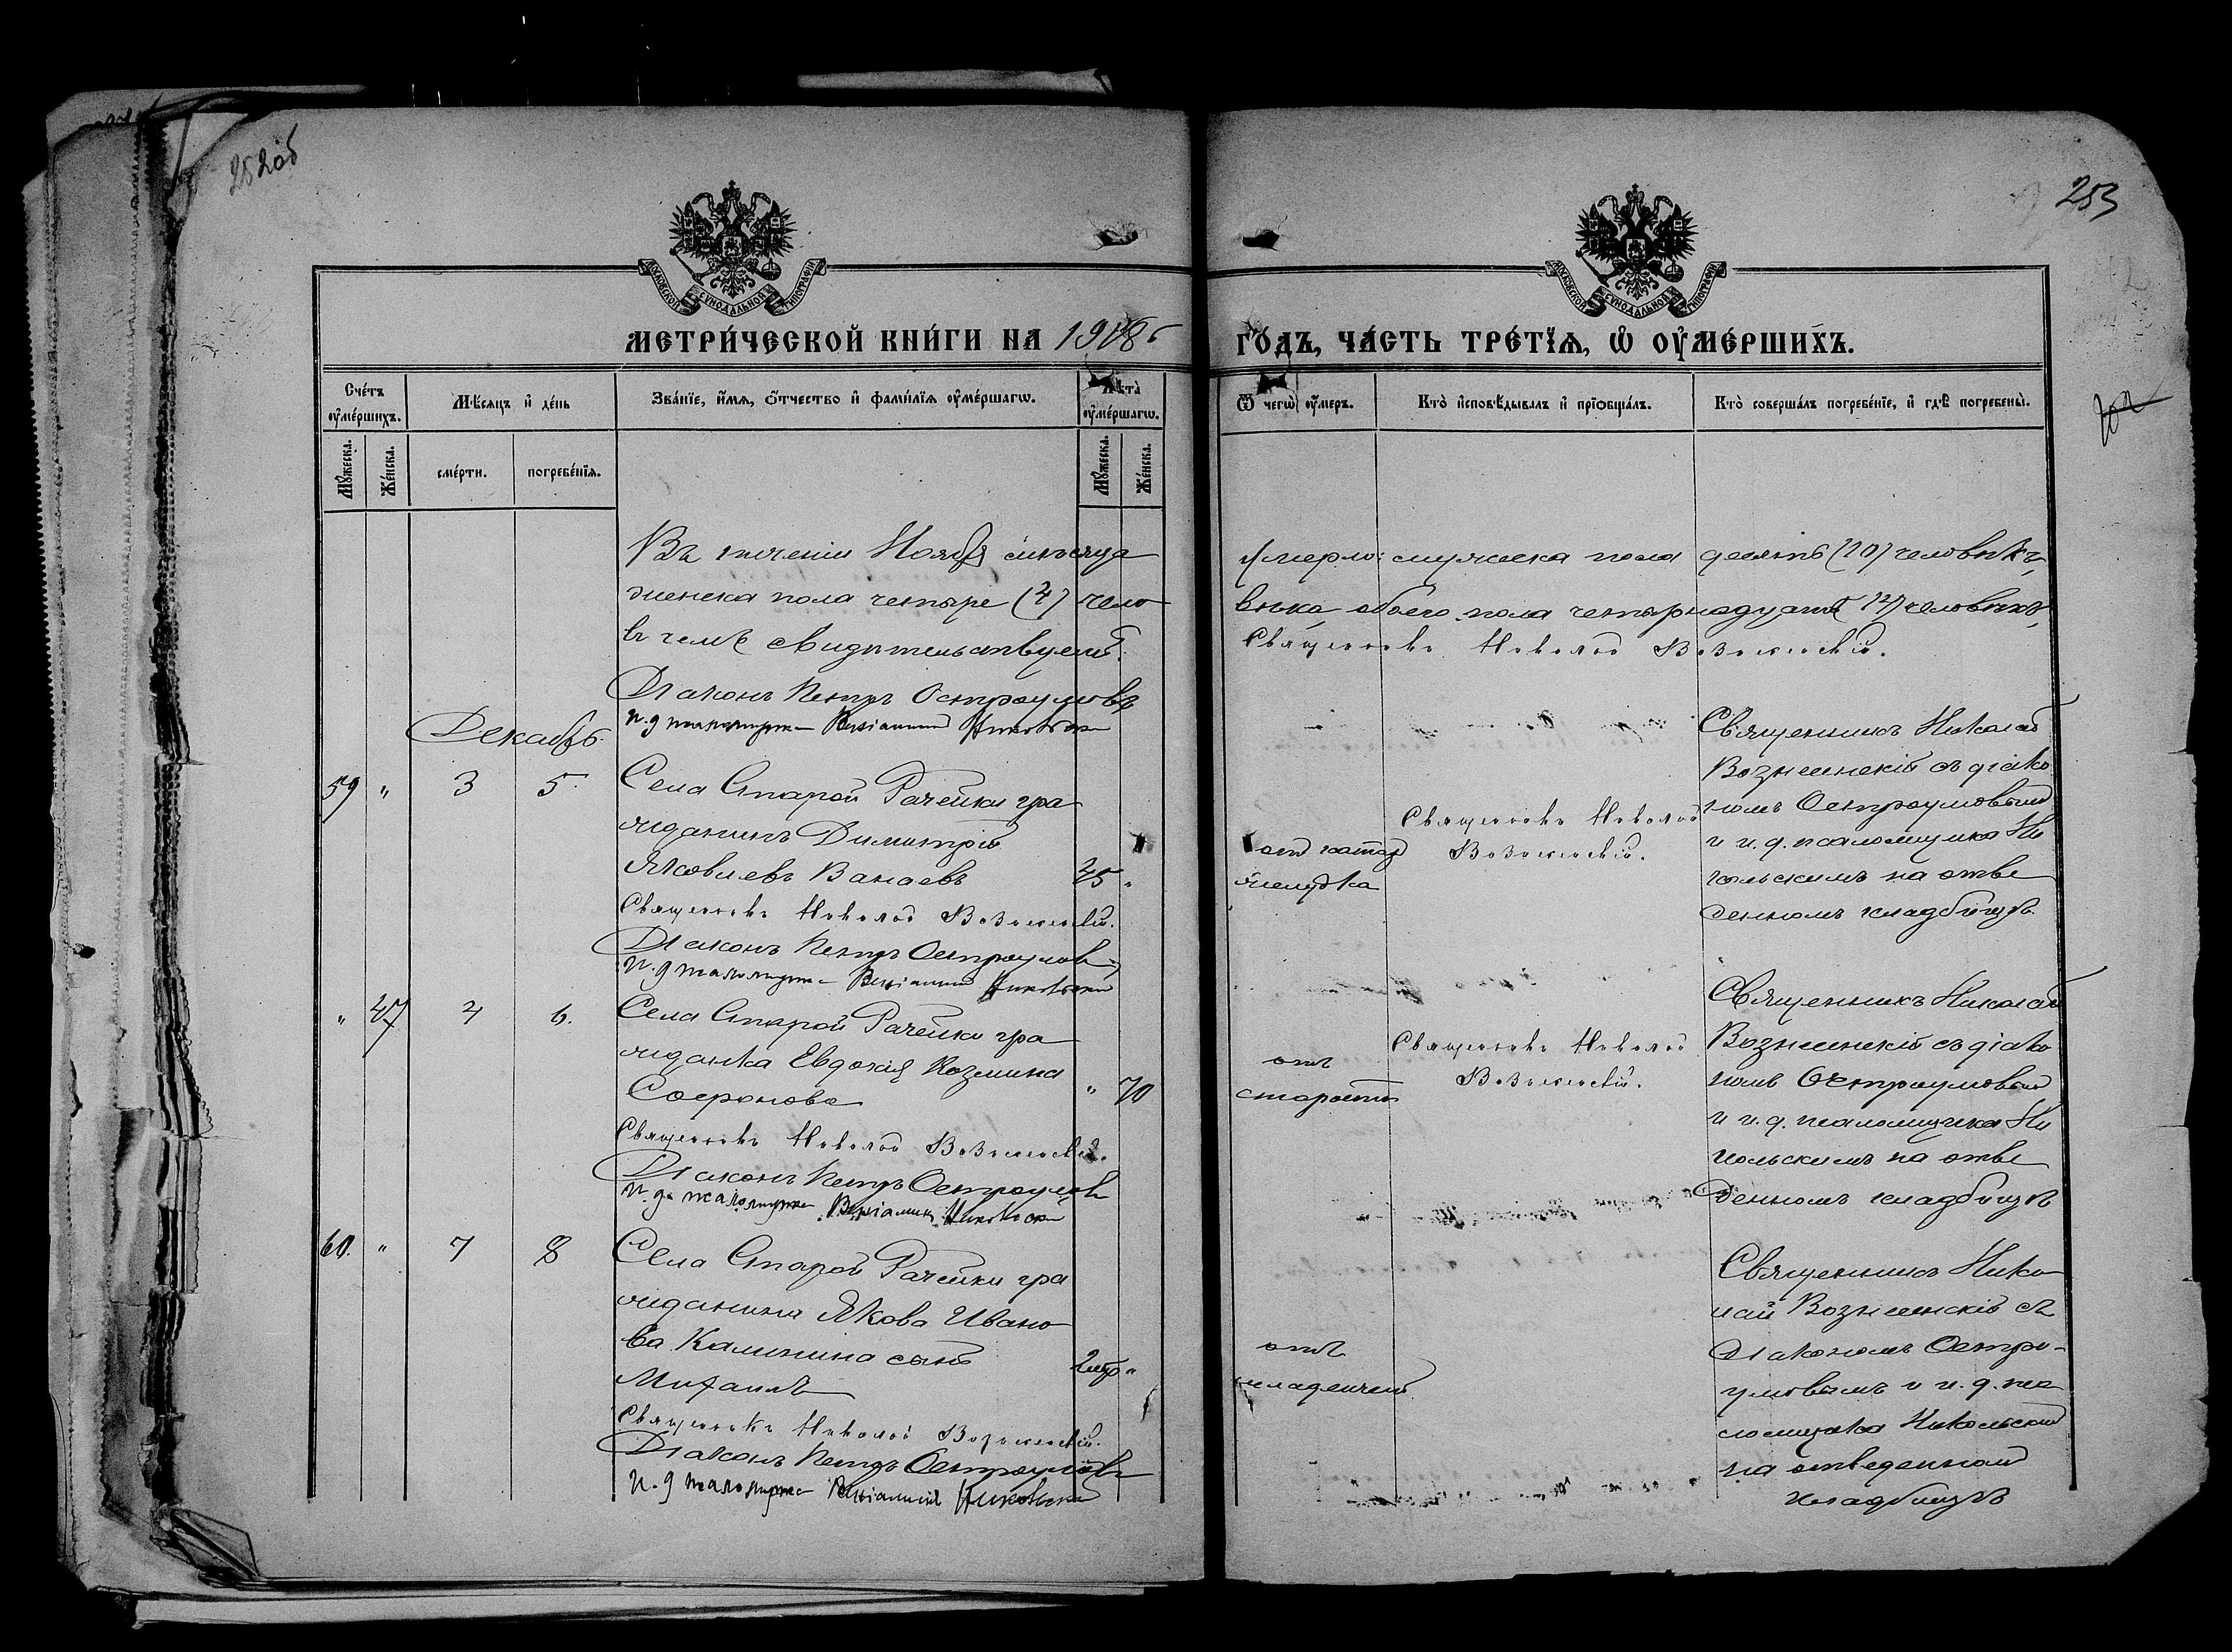 252об
253
МОСКОВСКОЙ СѴНОДАЛЬНОЙ ТИПОГРАФІИ
МОСКОВСКОЙ СѴНОДАЛЬНОЙ ТИПОГРАФІИ
МЕТРИ́ЧЕСКОЙ КНИ́ГИ НА 1918 г
ГО́ДЪ, ЧА́СТЬ ТРЕ́ТЇѦ, Ѡ҆ ОУ҆МЕ́РШИХЪ.
Сче́тъ оу҆ме́ршихъ.
Мѣ́сяцъ и҆ де́нь
Зва́нїе, и҆́мѧ, ѻ҆́тчество и҆ фами́лїѧ оу҆ме́ршагѡ.
Лѣ́та оу҆ме́ршагѡ.
Ѿ чегѡ̀ оу҆́меръ.
Кто̀ и҆сповѣ́дывалъ и҆ прїѡбща́лъ.
Кто̀ соверша́лъ погребе́нїе, и҆ гдѣ̀ погребены̀.
Мꙋ́жеска.
Же́нска.
сме́рти.
погребе́нїѧ.
Мꙋ́жеска.
Же́нска.
Въ теченіи Ноября мѣсяца
умерло: мужска пола десять (10) человѣкъ,
женска пола четыре (4) чело
вѣка, обоего пола четырнадцать (14) человѣкъ,
въ чемъ свидѣтельствуемъ:
Священникъ Николай Вознесенскій.
Діаконъ Петръ Остроумовъ
и.д псаломщика Веніаминъ Никольскій
Декабрь.
59 " 3 5.
Села Старой Рачейки гра
жданинъ Димитрій
Яковлевъ Ванаевъ 45 "
Священникъ Николай Вознесенскій.
Діаконъ Петръ Остроумовъ
и.д псаломщика Веніаминъ Никольскій
отъ катар
желудка
Священникъ Николай
Вознесенскій.
Священникъ Николай
Вознесенскій съ діако
номъ Остроумовымъ
и и.д. псаломщика Ни
кольскимъ на отве
денномъ кладбищѣ.
" 47 4 6.
Села Старой Рачейки гра
жданка Евдокія Козмина
Софронова " 70
Священникъ Николай Вознесенскій.
Діаконъ Петръ Остроумовъ
и.д. псаломщика Веніаминъ Никольскій
отъ
старости
Священникъ Николай
Вознесенскій.
Священникъ Николай
Вознесенскій съ діако
номъ Остроумовымъ
и и.д. псаломщика Ни
кольскимъ на отве
денномъ кладбищѣ
60. " 7 8
Села Старой Рачейки гра
жданина Якова Ивано
ва Калинина сынъ
Михаилъ "
Священникъ Николай Вознесенскій.
Діаконъ Петръ Остроумовъ
и.д псаломщика Веніаминъ Никольскій
отъ
младенческ.
Священникъ Нико
лай Вознесенскій съ
Діакономъ Остро-
умовымъ и и.д. пса
ломщика Никольским
на отведенном
кладбищѣ